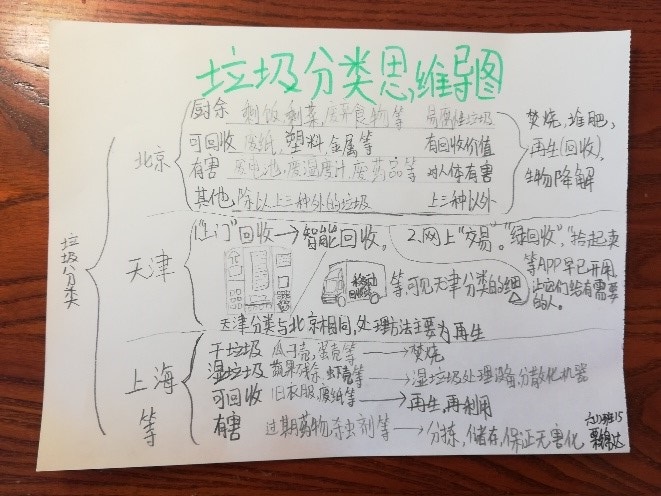 垃圾分类思维导图
垃圾分类
北京
厨余 剩饭,剩菜,废弃食物等 易腐性垃圾
可回收 废纸,塑料,金属等 有回收价值
有害 废电池,废温度计,废药品等 对人体有害
其他,除以上三种外的垃圾 上三种以外
焚烧,堆肥,
再生(回收),
生物降解
天津
1."上门"回收→智能回收,
2.网上"交易"。"绿回收","拾起卖"
等APP早已开用,
让它们给有需要
的人。
移动
等,可见天津分类的细
天津分类与北京相同,处理方法主要为再生
上海
等
干垃圾 瓜子壳,蛋壳等→焚烧
湿垃圾 苹果残余,虾壳等→湿垃圾处理设备,分散化机器
可回收 旧衣服,废纸等→再生,再利用
有害 过期药物,杀虫剂等→分拣,储存,保证无害化